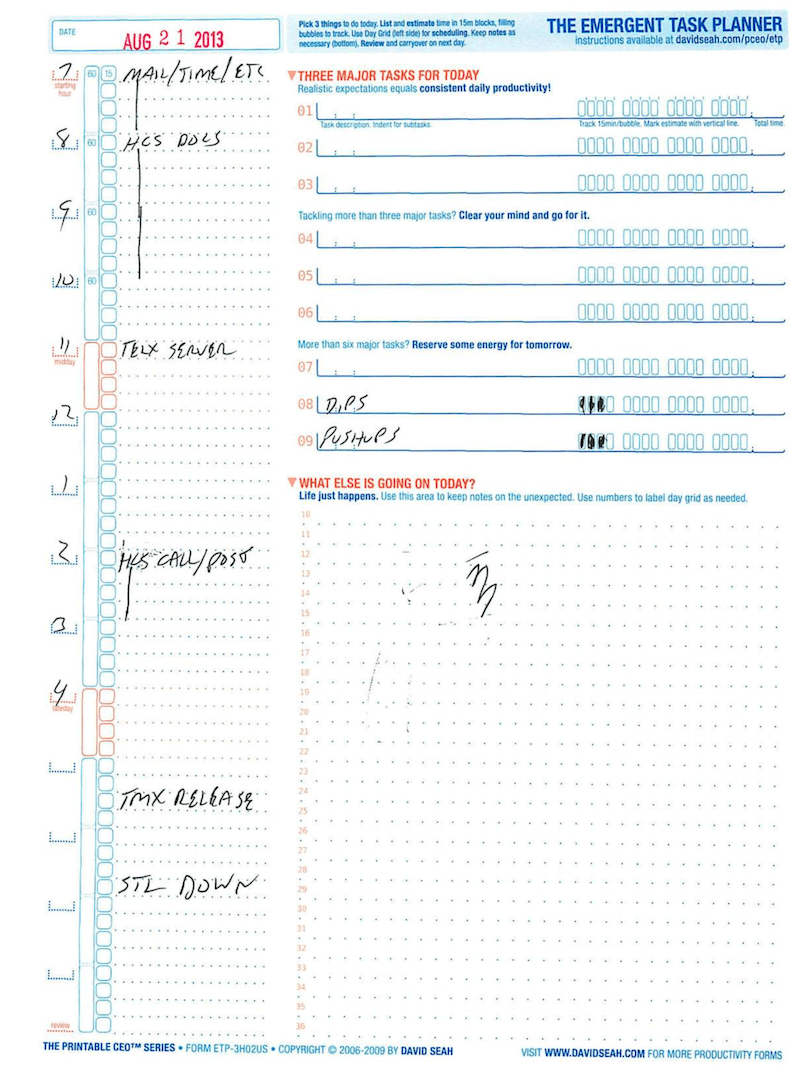 DATE
AUG 21 2013
Pick 3 things to do today. List and estimate time in 15m blocks, filling
bubbles to track. Use Day Grid (left side) for scheduling. Keep notes as
necessary (bottom). Review and carryover on next day.
THE EMERGENT TASK PLANNER
instructions available at davidseah.com/pceo/etp
7 60 15 MAIL/TIME/ETC
starting
hour
8 60 HCS DOCS
9 60
10 60
11 TELX SERVER
midday
12
1
2 HCS CALL/POST
3
4
lateday
TMX RELEASE
STL DOWN
review
THREE MAJOR TASKS FOR TODAY
Realistic expectations equals consistent daily productivity!
01
Task description. Indent for subtasks. Track 15min/bubble. Mark estimate with vertical line. Total time.
02
03
Tackling more than three major tasks? Clear your mind and go for it.
04
05
06
More than six major tasks? Reserve some energy for tomorrow.
07
08 DIPS
09 PUSHUPS
WHAT ELSE IS GOING ON TODAY?
Life just happens. Use this area to keep notes on the unexpected. Use numbers to label day grid as needed.
10
11
12
13
14
15
16
17
18
19
20
21
22
23
24
25
26
27
28
29
30
31
32
33
34
35
36
THE PRINTABLE CEO™ SERIES • FORM ETP-3H02US • COPYRIGHT © 2006-2009 BY DAVID SEAH
VISIT WWW.DAVIDSEAH.COM FOR MORE PRODUCTIVITY FORMS